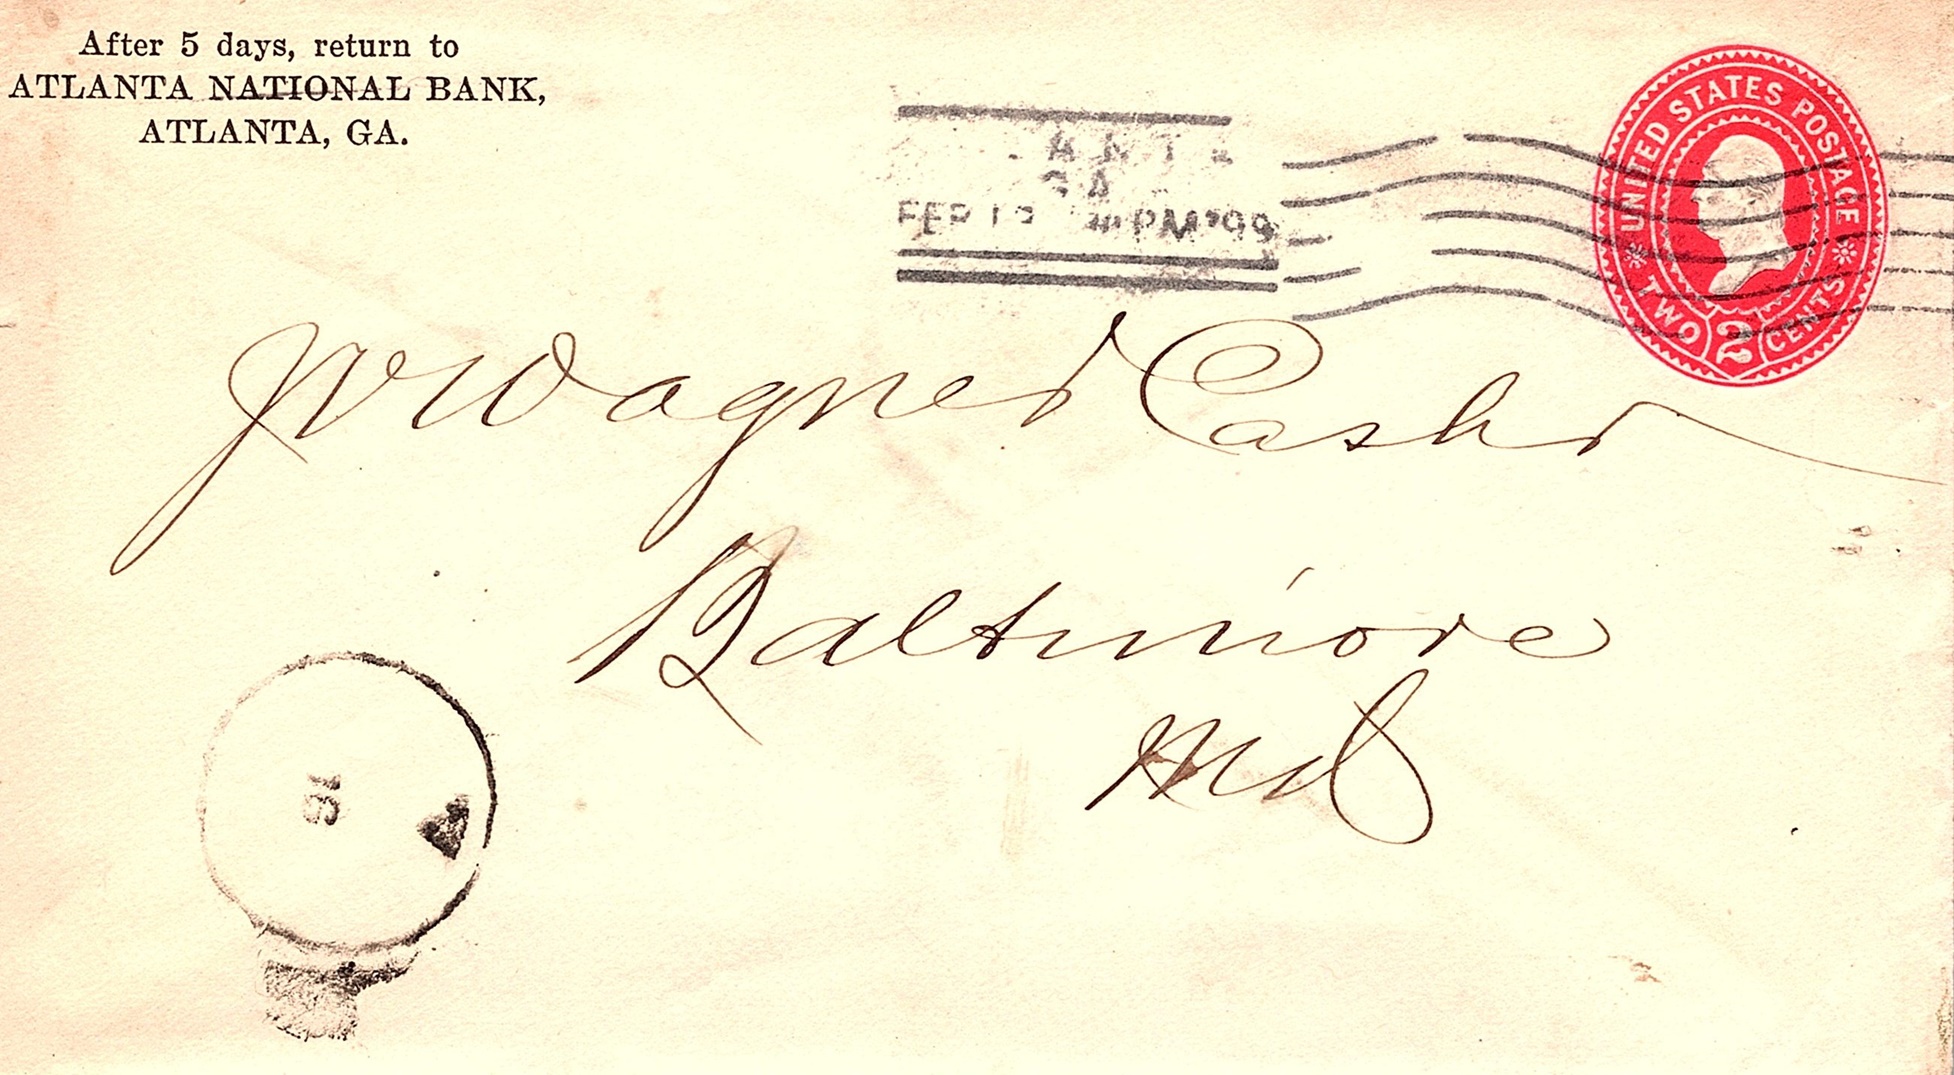 After 5 days, return to
ATLANTA NATIONAL BANK,
ATLANTA, GA.
UNITED STATES POSTAGE
TWO 2 CENTS
GA
FEB PM '99
Wagner Cashr
Baltimore
Md
16